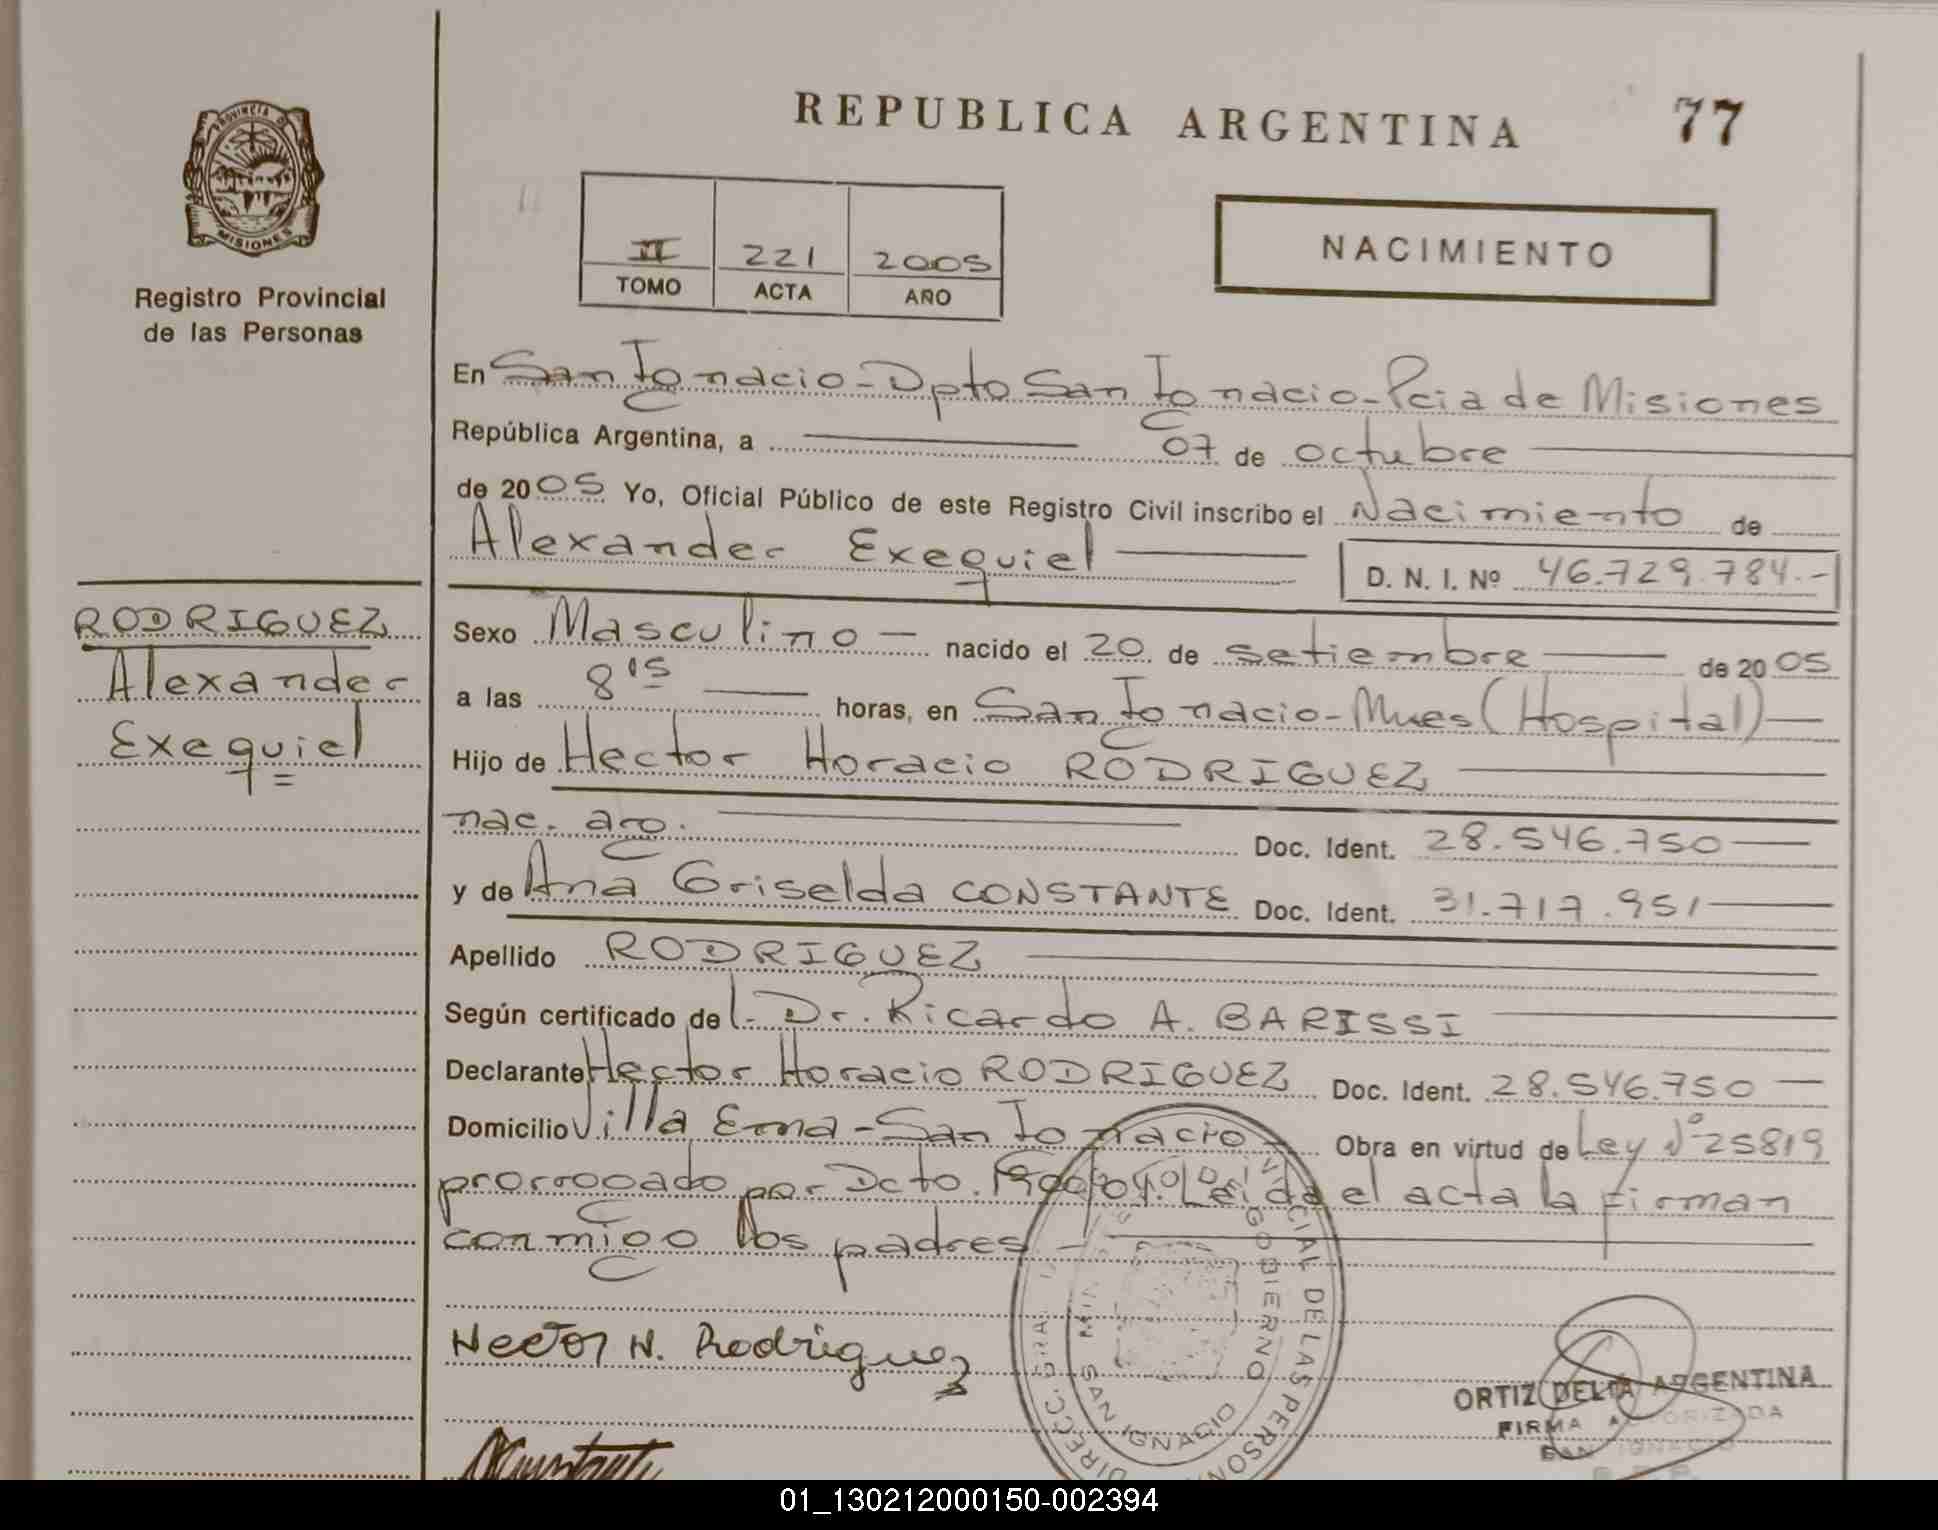 REPUBLICA ARGENTINA
77
PROVINCIA DE
MISIONES
Registro Provincial
de las Personas
II 221 2005
TOMO ACTA AÑO
NACIMIENTO
En San Ignacio - Dpto San Ignacio - Pcia de Misiones
República Argentina, a 07 de octubre
de 2005 Yo, Oficial Público de este Registro Civil inscribo el Nacimiento de
Alexander Exequiel
D. N. I. Nº 46.729.784.-
RODRIGUEZ
Alexander
Exequiel
Sexo Masculino - nacido el 20 de setiembre de 2005
a las 8 15 horas, en San Ignacio - Mnes (Hospital)
Hijo de Hector Horacio RODRIGUEZ
nac. arg. Doc. Ident. 28.546.750
y de Ana Griselda CONSTANTE Doc. Ident. 31.717.951
Apellido RODRIGUEZ
Según certificado de l. Dr. Ricardo A. BARISSI
Declarante Hector Horacio RODRIGUEZ Doc. Ident. 28.546.750
Domicilio Villa Ema - San Ignacio Obra en virtud de Ley Nº 25819
prorrogado por Dcto. Leida el acta la firman
conmigo los padres
Hector H. Rodriguez
CIAL DE LAS PERSON
GOBIERNO
SAN IGNACIO
DIRECC
ORTIZ DELIA ARGENTINA
FIRMA AUTORIZADA
SAN IGNACIO
01_130212000150-002394